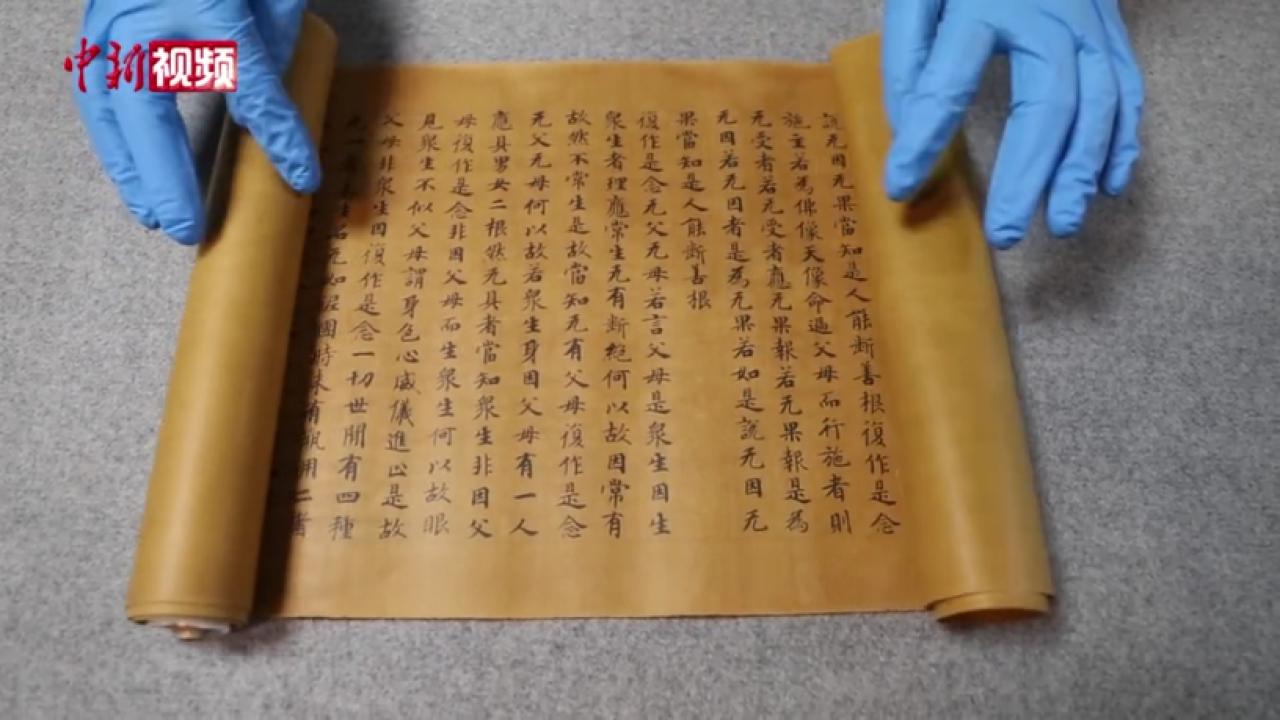 中新视频
說无因无果當知是人能断善根復作是念
施主若為佛像天像命過父母而行施者則
无受者若无受者應无果報若无果報是為
无因若无因者是為无果若如是說无因无
果當知是人能断善根
復作是念无父无母若言父母是衆生因生
衆生者理應常生无有断絕何以故因常有
故然不常生是故當知无有父母復作是念
无父无母何以故若衆生身因父母有一人
應具男女二根然无具者當知衆生非因父
母復作是念非因父母而生衆生何以故眼
見衆生不似父母謂身色心威儀進止是故
父母非衆生因復作是念一切世間有四種
无一者未生名无如泥團時未有瓶用二者